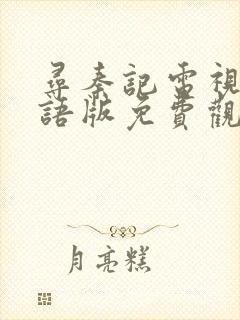 尋秦記電視
語版免費觀
月亮糕